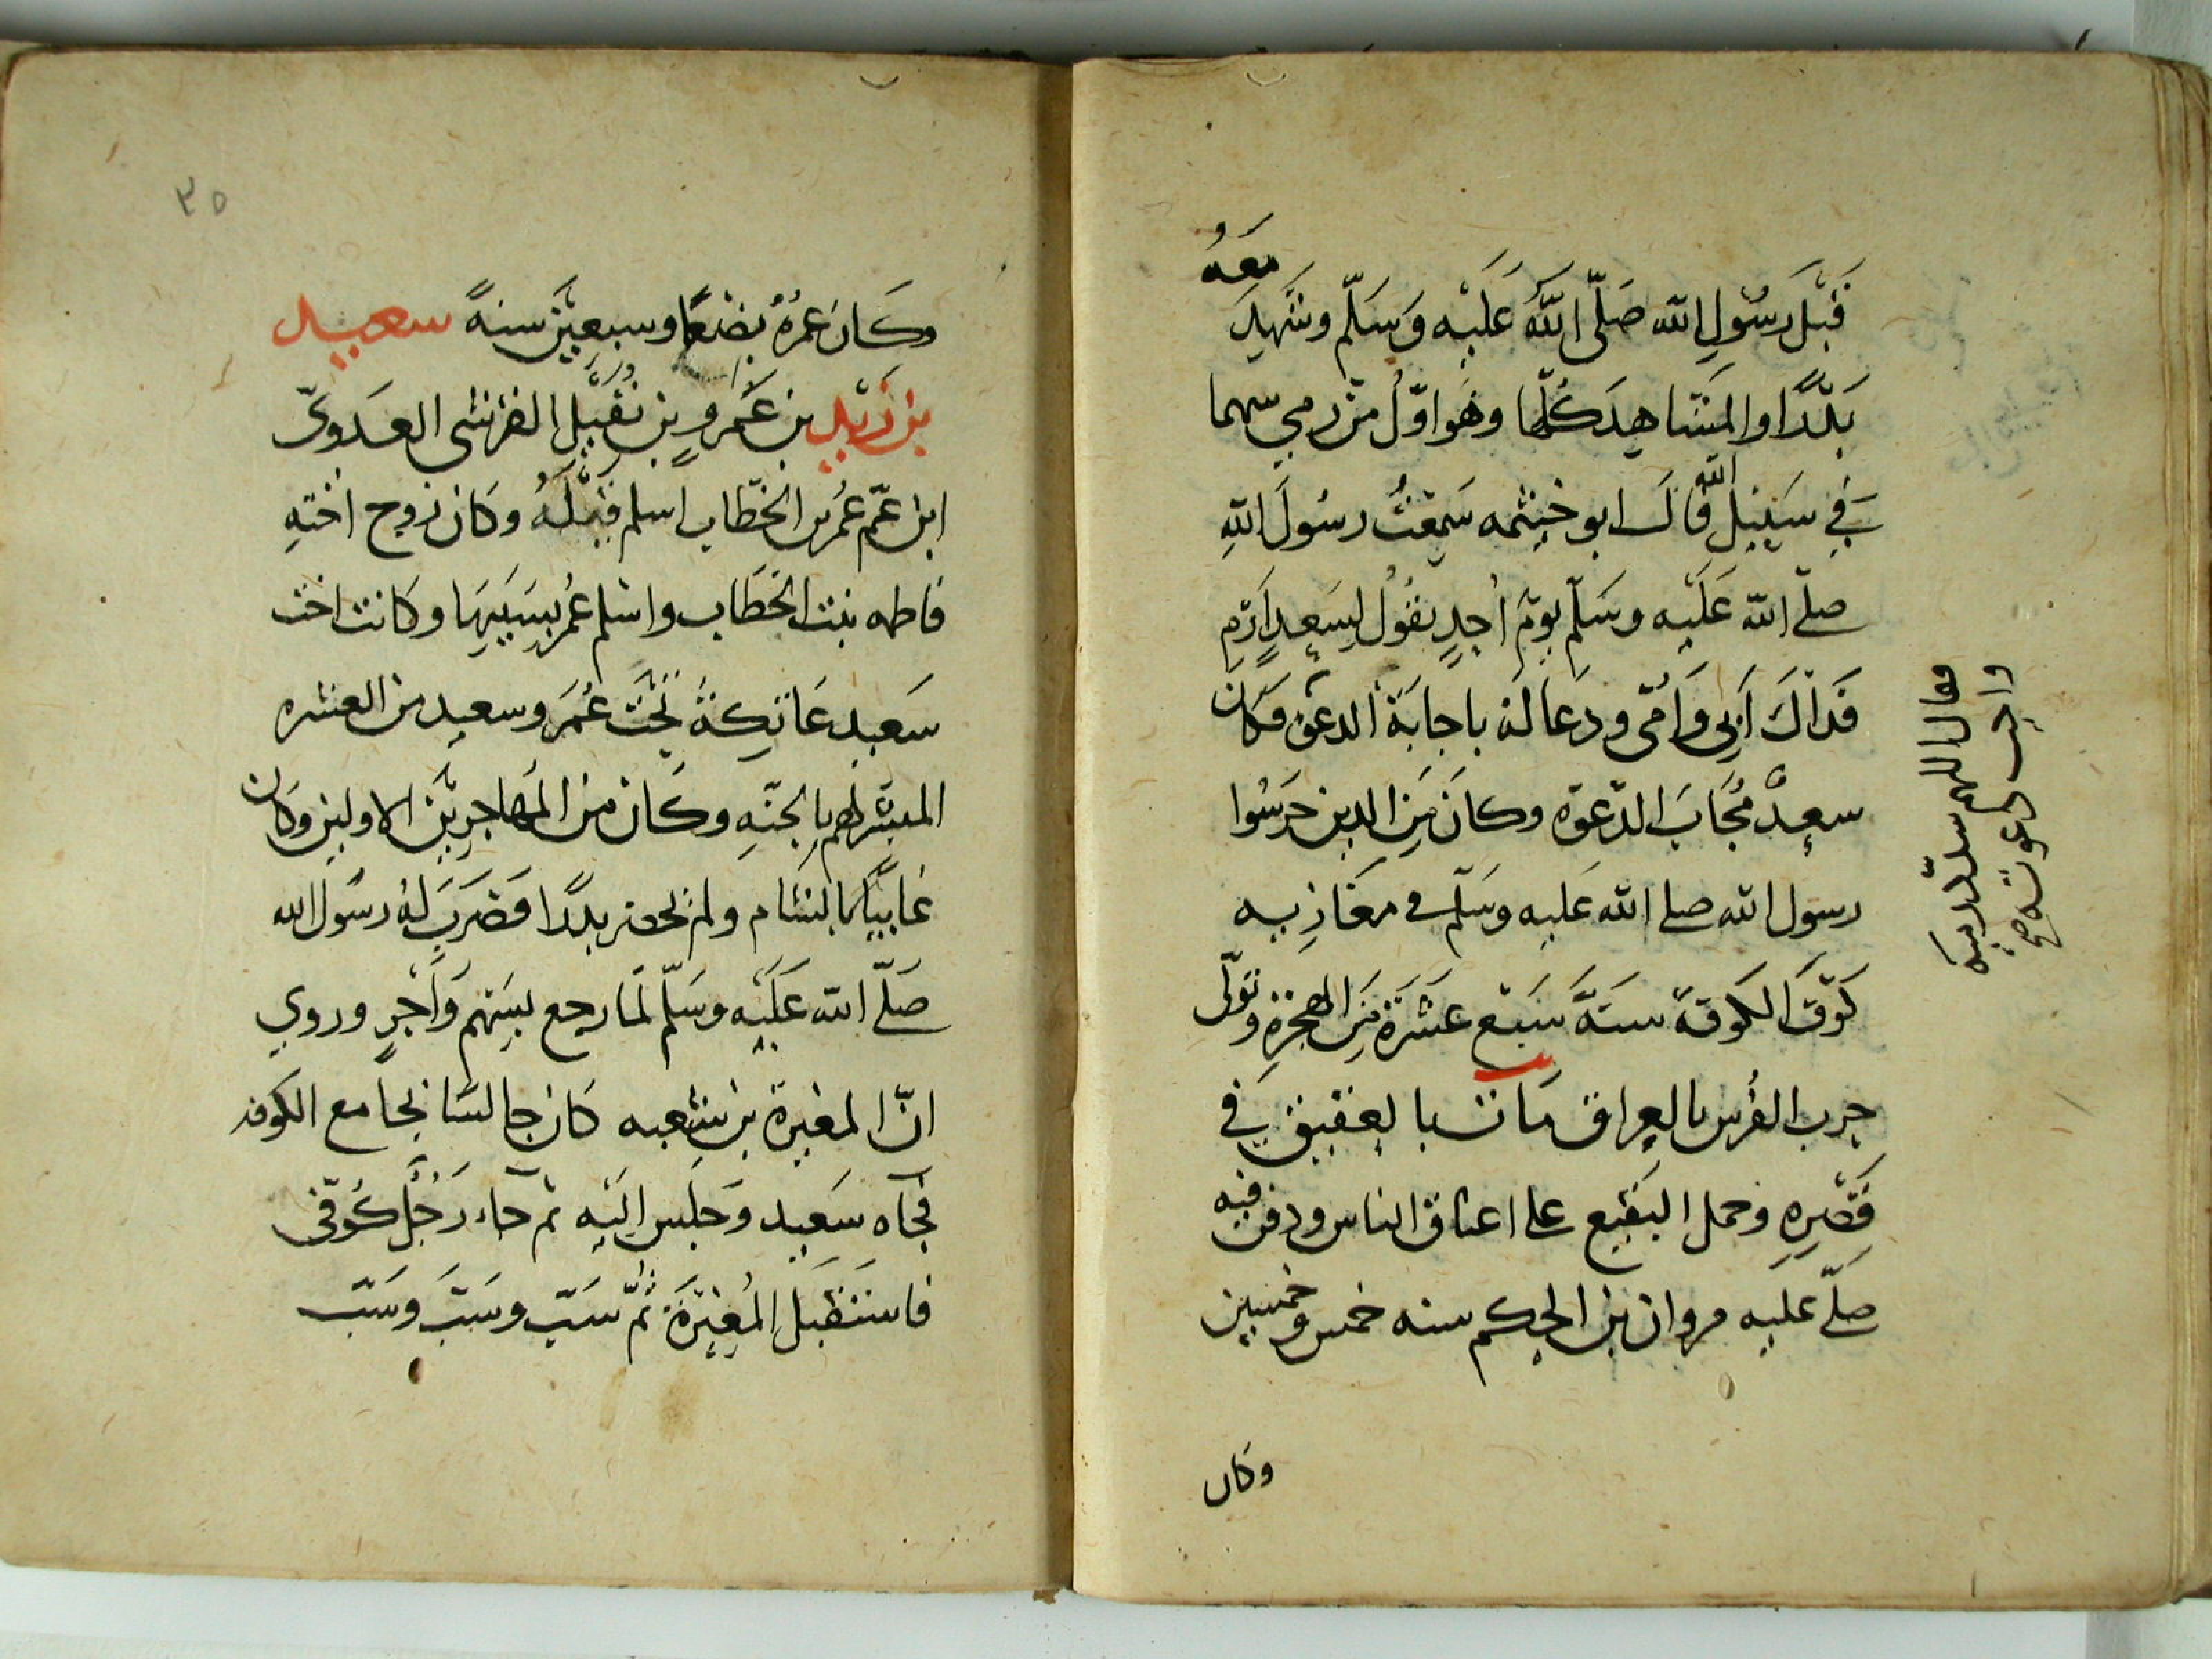 معه
قبل رسول الله صلى الله عليه وسلم وشهد
بدرا والمشاهد كلها وهو اول من رمى سهما
في سبيل الله قال ابو خيثمه سمعت رسول الله
صلى الله عليه وسلم يوم احد يقول لسعد ارم
فداك ابي وامي ودعا له باجابة الدعوة فكان
سعد مجاب الدعوة وكان من الذين حرسوا
رسول الله صلى الله عليه وسلم في مغازيه
كوف الكوفة سنة سبع عشرة من الهجرة وتولى
حرب الفرس بالعراق مات بالعقيق في
قصره وحمل البقيع على اعناق الناس ودفن فيه
صلى عليه مروان بن الحكم سنه خمس وخمسين
وكان
فقال اللهم سدد رميته
واجب دعوته صح
٣٥
وكان عمره بضعا وسبعين سنة سعيد
بن زيد بن عمرو بن نفيل القرشي العدوي
ابن عم عمر بن الخطاب اسلم قبله وكان زوج اخته
فاطمه بنت الخطاب واسلم عمر بسببها وكانت اخت
سعيد عاتكة تحت عمر وسعيد من العشره
المبشر لهم بالجنه وكان من المهاجرين الاولين وكان
غايبا بالشام ولم يحضر بدرا فضرب له رسول الله
صلى الله عليه وسلم لما رجع بسهم واجر وروي
ان المغيرة بن شعبه كان جالسا بجامع الكوفه
فجاه سعيد وجلس اليه ثم جاء رجل كوفي
فاستقبل المغيرة ثم سب وسب وسب